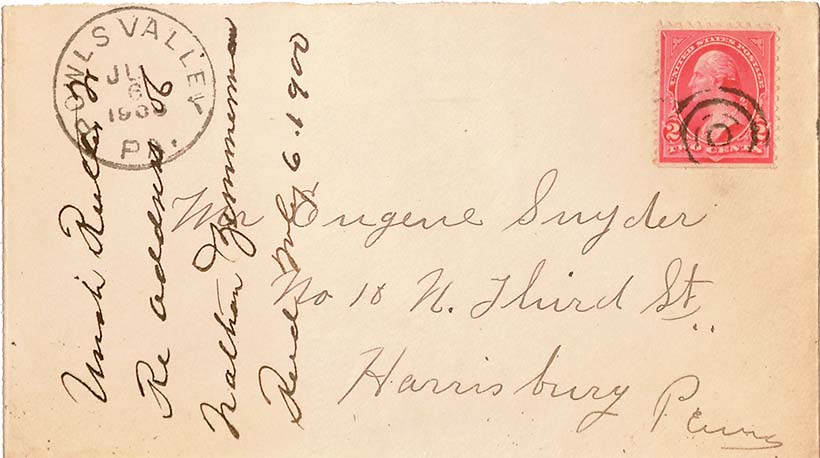 POWLS VALLEY
JUL
6
1900
PA.
UNITED STATES POSTAGE
2 2
TWO CENTS
Mr Eugene Snyder
No 10 N. Third St.
Harrisburg
Penna
Re address
Nathan Zimmerman
Recd July 6. 1900